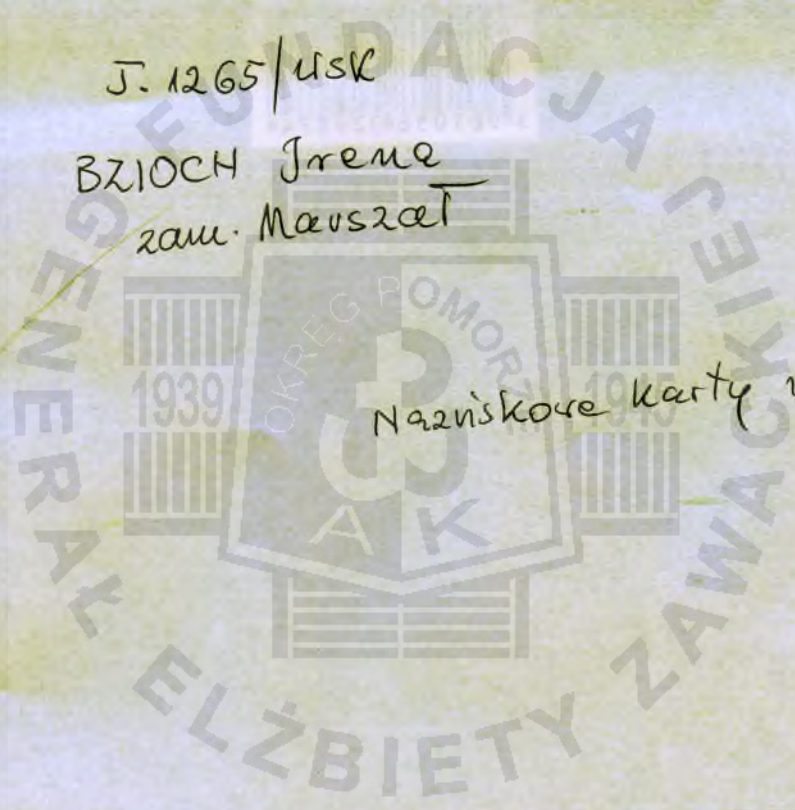 J. 1265/WSK
BZIOCH Irena
zam. Marszał
Nazwiskowe karty
FUNDACJA GENERAŁ ELŻBIETY ZAWACKIEJ
OKRĘG POMORZE
1939
1945
AK